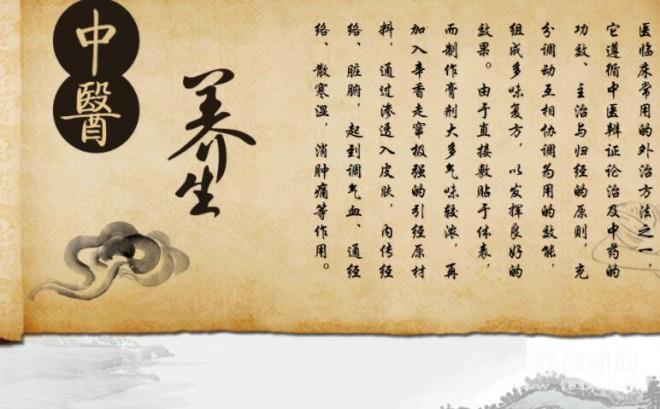 医临床常用的外治方法之一，
它遵循中医辩证论治及中药的
功效、主治与归经的原则，充
分调动互相协调为用的效能，
组成多味复方，以发挥良好的
效果。由于直接敷贴于体表，
而制作膏剂大多气味较浓，再
加入辛香走窜极强的引经原材
料，通过渗透入皮肤，内传经
络、脏腑，起到调气血、通经
络、散寒湿，消肿痛等作用。
养生
中醫